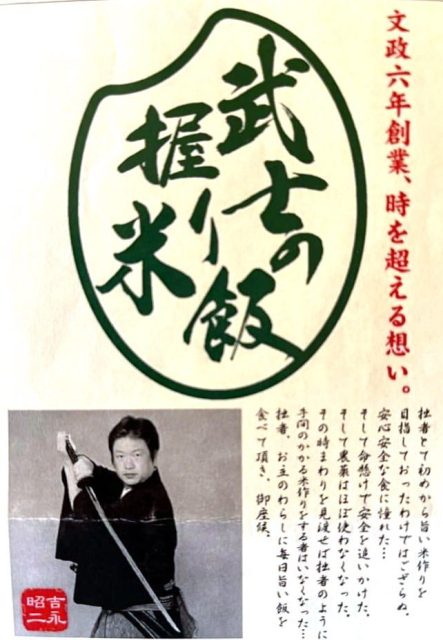 文政六年創業、時を超える想い。
武士の
握り飯
米
拙者とて初めから旨い米作りを
目指しておったわけではござらぬ。
安心安全な食に憧れた…
そして命懸けで安全を追いかけた。
そして農薬はほぼ使わなくなった。
その時まわりを見渡せば拙者のように
手間のかかる米作りをする者はいなくなった…
拙者、お主のわらしに毎日旨い飯を
食べて頂き、御座候。
吉永
昭二